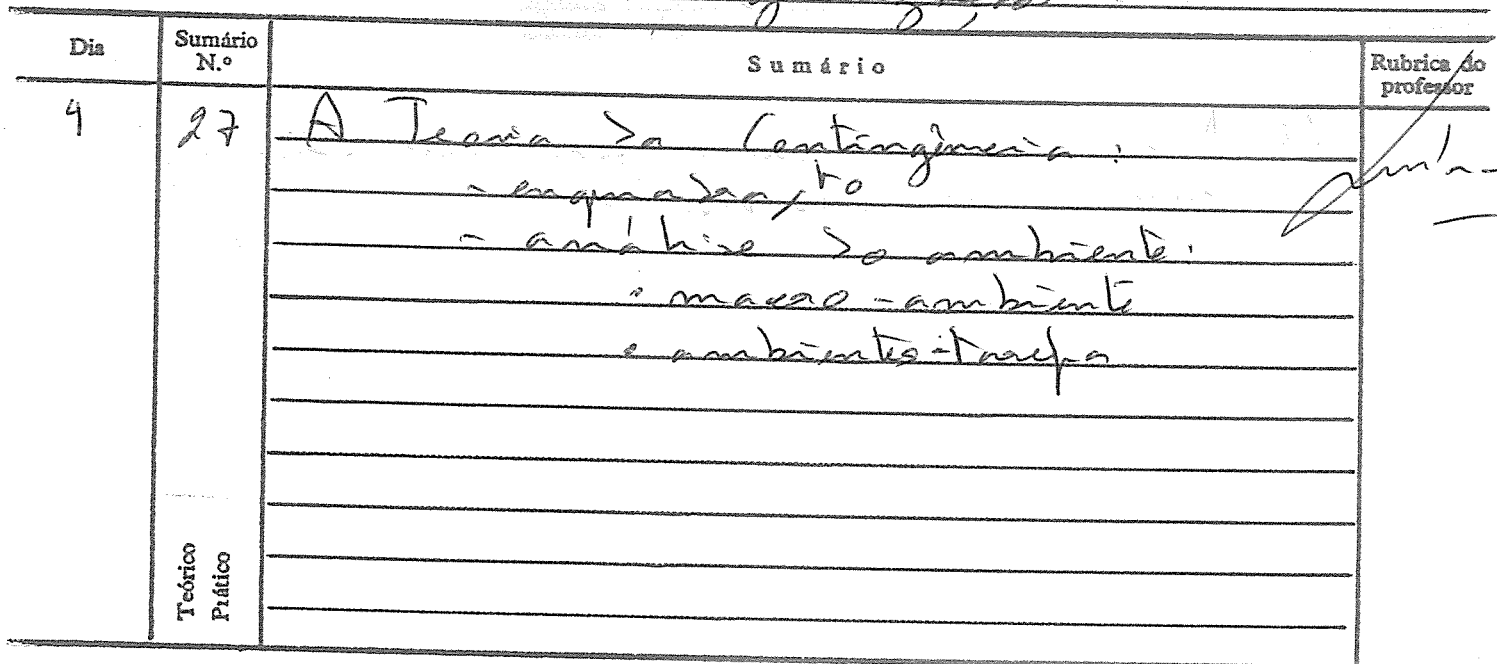 Dia
Sumário N.º
Sumário
Rubrica do professor
4
27
A Teoria da Contingência:
- enquadra/to
- análise do ambiente:
• macro-ambiente
• ambientes-tarefa
Teórico
Prático